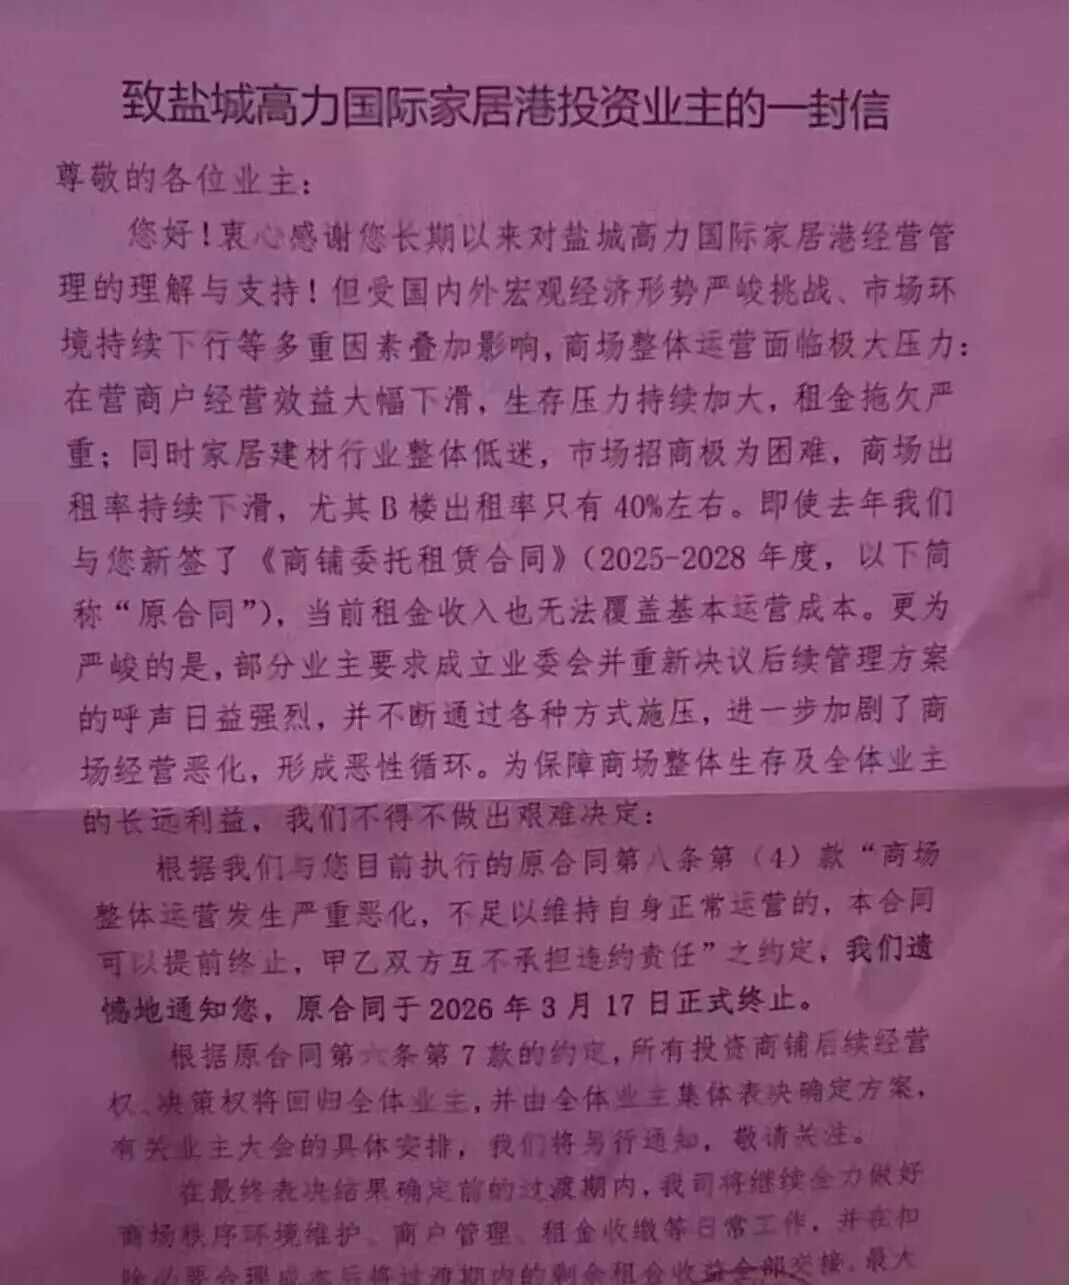 致盐城高力国际家居港投资业主的一封信
尊敬的各位业主：
您好！衷心感谢您长期以来对盐城高力国际家居港经营管
理的理解与支持！但受国内外宏观经济形势严峻挑战、市场环
境持续下行等多重因素叠加影响，商场整体运营面临极大压力：
在营商户经营效益大幅下滑，生存压力持续加大，租金拖欠严
重；同时家居建材行业整体低迷，市场招商极为困难，商场出
租率持续下滑，尤其B楼出租率只有40%左右。即使去年我们
与您新签了《商铺委托租赁合同》（2025-2028年度，以下简
称“原合同”），当前租金收入也无法覆盖基本运营成本。更为
严峻的是，部分业主要求成立业委会并重新决议后续管理方案
的呼声日益强烈，并不断通过各种方式施压，进一步加剧了商
场经营恶化，形成恶性循环。为保障商场整体生存及全体业主
的长远利益，我们不得不做出艰难决定：
根据我们与您目前执行的原合同第八条第（4）款“商场
整体运营发生严重恶化，不足以维持自身正常运营的，本合同
可以提前终止，甲乙双方互不承担违约责任”之约定，我们遗
憾地通知您，原合同于2026年3月17日正式终止。
根据原合同第六条第7款的约定，所有投资商铺后续经营
权、决策权将回归全体业主，并由全体业主集体表决确定方案，
有关业主大会的具体安排，我们将另行通知，敬请关注。
在最终表决结果确定前的过渡期内，我司将继续全力做好
商场秩序环境维护、商户管理、租金收缴等日常工作，并在扣
除必要合理成本后将过渡期内的剩余租金收益全部交接，最大